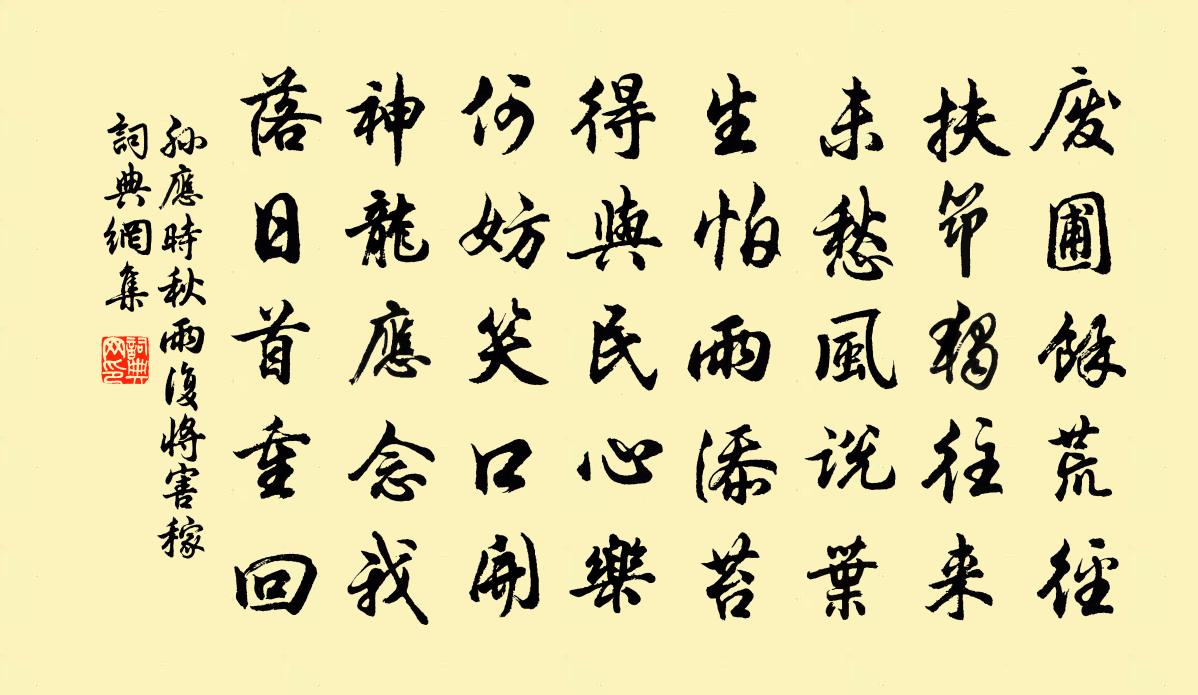 廢圃餘荒徑
扶筇獨往来
未愁風說葉
生怕雨添苔
得與民心樂
何妨笑口開
神龍應念我
落日首重回
孫應時秋雨復將害稼
詞典網集
詞典網印